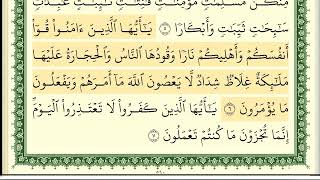 مِنكُنَّ مُسْلِمَٰتٍ مُّؤْمِنَٰتٍ قَٰنِتَٰتٍ تَٰٓئِبَٰتٍ عَٰبِدَٰتٍ
سَٰٓئِحَٰتٍ ثَيِّبَٰتٍ وَأَبْكَارًا ٥ يَٰٓأَيُّهَا ٱلَّذِينَ ءَامَنُوا۟ قُوٓا۟
أَنفُسَكُمْ وَأَهْلِيكُمْ نَارًا وَقُودُهَا ٱلنَّاسُ وَٱلْحِجَارَةُ عَلَيْهَا
مَلَٰٓئِكَةٌ غِلَاظٌ شِدَادٌ لَّا يَعْصُونَ ٱللَّهَ مَآ أَمَرَهُمْ وَيَفْعَلُونَ
مَا يُؤْمَرُونَ ٦ يَٰٓأَيُّهَا ٱلَّذِينَ كَفَرُوا۟ لَا تَعْتَذِرُوا۟ ٱلْيَوْمَ
إِنَّمَا تُجْزَوْنَ مَا كُنتُمْ تَعْمَلُونَ ٧